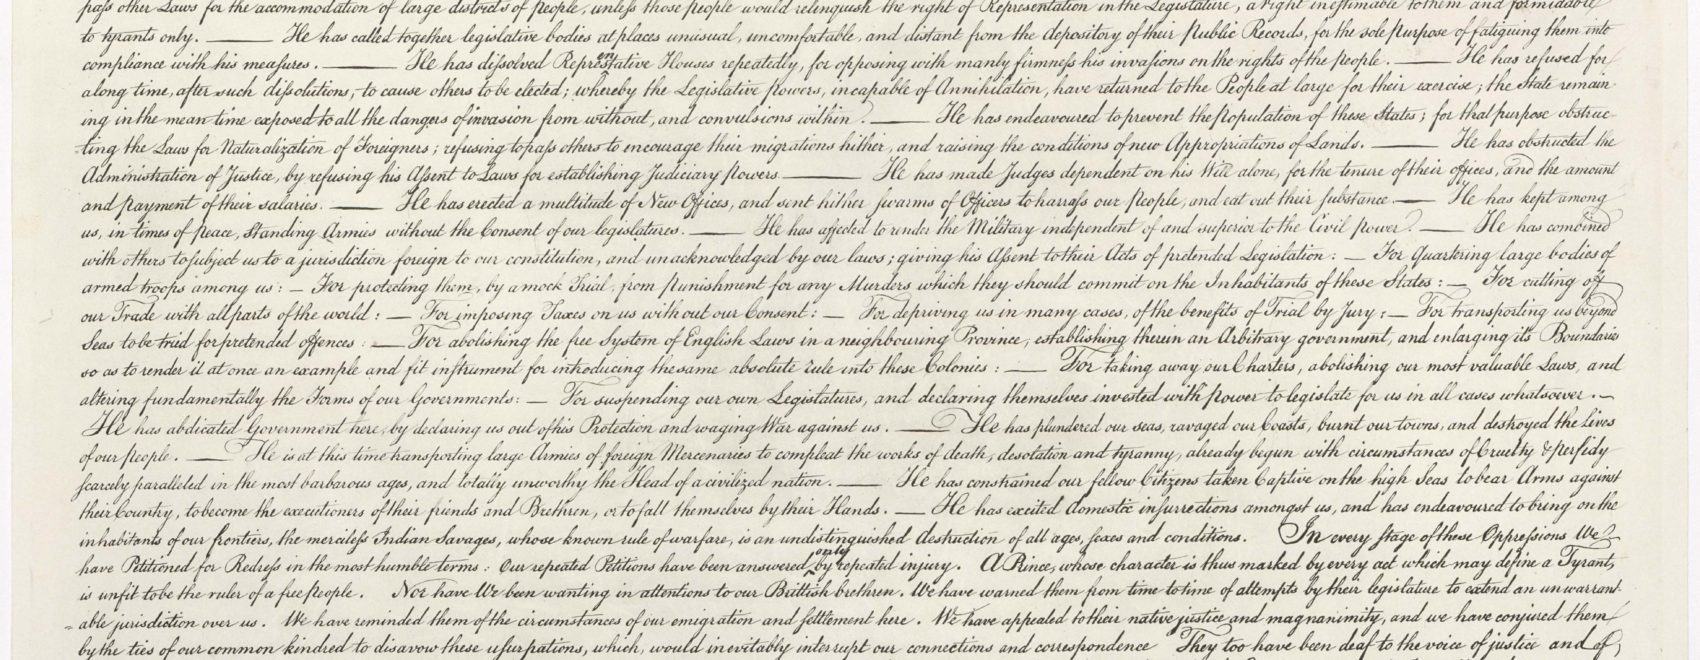 pass other Laws for the accommodation of large districts of people, unless those people would relinquish the right of Representation in the Legislature, a right inestimable to them and formidable
to tyrants only. —— He has called together legislative bodies at places unusual, uncomfortable, and distant from the depository of their Public Records, for the sole purpose of fatiguing them into
compliance with his measures. —— He has dissolved Representative Houses repeatedly, for opposing with manly firmness his invasions on the rights of the people. —— He has refused for
a long time, after such dissolutions, to cause others to be elected; whereby the Legislative powers, incapable of Annihilation, have returned to the People at large for their exercise; the State remain-
ing in the mean time exposed to all the dangers of invasion from without, and convulsions within. —— He has endeavoured to prevent the population of these States; for that purpose obstruc-
ting the Laws for Naturalization of Foreigners; refusing to pass others to encourage their migrations hither, and raising the conditions of new Appropriations of Lands. —— He has obstructed the
Administration of Justice, by refusing his Assent to Laws for establishing Judiciary powers. —— He has made Judges dependent on his Will alone, for the tenure of their offices, and the amount
and payment of their salaries. —— He has erected a multitude of New Offices, and sent hither swarms of Officers to harrass our people, and eat out their substance. —— He has kept among
us, in times of peace, Standing Armies without the Consent of our legislatures. —— He has affected to render the Military independent of and superior to the Civil power. —— He has combined
with others to subject us to a jurisdiction foreign to our constitution, and unacknowledged by our laws; giving his Assent to their Acts of pretended Legislation: — For Quartering large bodies of
armed troops among us: — For protecting them, by a mock Trial, from punishment for any Murders which they should commit on the Inhabitants of these States: — For cutting off
our Trade with all parts of the world: — For imposing Taxes on us without our Consent: — For depriving us in many cases, of the benefits of Trial by Jury: — For transporting us beyond
Seas to be tried for pretended offences: — For abolishing the free System of English Laws in a neighbouring Province, establishing therein an Arbitrary government, and enlarging its Boundaries
so as to render it at once an example and fit instrument for introducing the same absolute rule into these Colonies: —— For taking away our Charters, abolishing our most valuable Laws, and
altering fundamentally the Forms of our Governments: — For suspending our own Legislatures, and declaring themselves invested with power to legislate for us in all cases whatsoever. —
He has abdicated Government here, by declaring us out of his Protection and waging War against us. —— He has plundered our seas, ravaged our Coasts, burnt our towns, and destroyed the Lives
of our people. —— He is at this time transporting large Armies of foreign Mercenaries to compleat the works of death, desolation and tyranny, already begun with circumstances of Cruelty & perfidy
scarcely paralleled in the most barbarous ages, and totally unworthy the Head of a civilized nation. —— He has constrained our fellow Citizens taken Captive on the high Seas to bear Arms against
their Country, to become the executioners of their friends and Brethren, or to fall themselves by their Hands. — He has excited domestic insurrections amongst us, and has endeavoured to bring on the
inhabitants of our frontiers, the merciless Indian Savages, whose known rule of warfare, is an undistinguished destruction of all ages, sexes and conditions. In every stage of these Oppressions We
have Petitioned for Redress in the most humble terms: Our repeated Petitions have been answered only by repeated injury. A Prince, whose character is thus marked by every act which may define a Tyrant,
is unfit to be the ruler of a free people. Nor have We been wanting in attentions to our Brittish brethren. We have warned them from time to time of attempts by their legislature to extend an unwarrant-
able jurisdiction over us. We have reminded them of the circumstances of our emigration and settlement here. We have appealed to their native justice and magnanimity, and we have conjured them
by the ties of our common kindred to disavow these usurpations, which, would inevitably interrupt our connections and correspondence They too have been deaf to the voice of justice and of